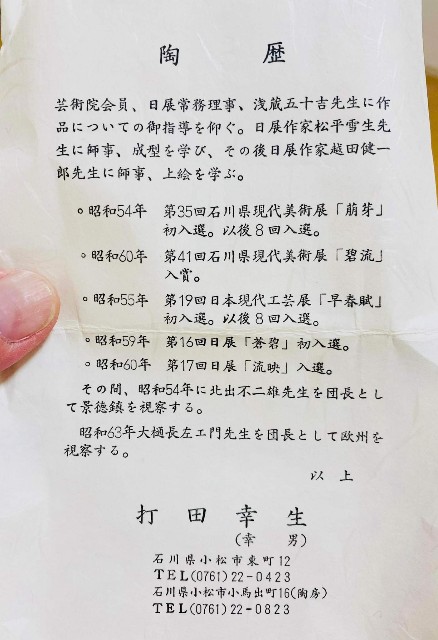 陶歴
芸術院会員、日展常務理事、浅蔵五十吉先生に作
品についての御指導を仰ぐ。日展作家松平雪生先
生に師事、成型を学び、その後日展作家越田健一
郎先生に師事、上絵を学ぶ。
○昭和54年 第35回石川県現代美術展「萠芽」
初入選。以後8回入選。
○昭和60年 第41回石川県現代美術展「碧流」
入賞。
○昭和55年 第19回日本現代工芸展「早春賦」
初入選。以後8回入選。
○昭和59年 第16回日展「蒼碧」初入選。
○昭和60年 第17回日展「流映」入選。
その間、昭和54年に北出不二雄先生を団長とし
て景徳鎮を視察する。
昭和63年大樋長左エ門先生を団長として欧州を
視察する。
以上
打田幸生
(幸男)
石川県小松市東町12
TEL(0761)22-0423
石川県小松市小馬出町16(陶房)
TEL(0761)22-0823